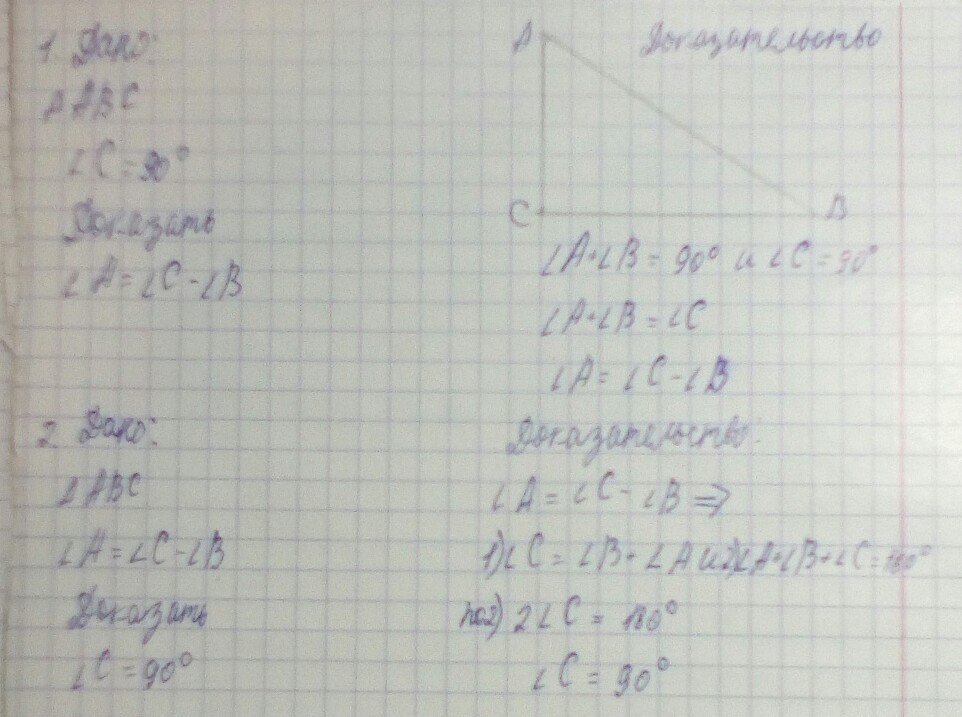 1. Дано:
△ABC
∠C = 90°
Доказать
∠A = ∠C - ∠B
Доказательство
A
C
B
∠A+∠B = 90° и ∠C = 90°
∠A+∠B = ∠C
∠A = ∠C - ∠B
2 Дано:
△ABC
∠A = ∠C - ∠B
Доказать
∠C = 90°
Доказательство:
∠A = ∠C - ∠B ⇒
1) ∠C = ∠B + ∠A и 2) ∠A+∠B+∠C = 180°
по 2) 2∠C = 180°
∠C = 90°